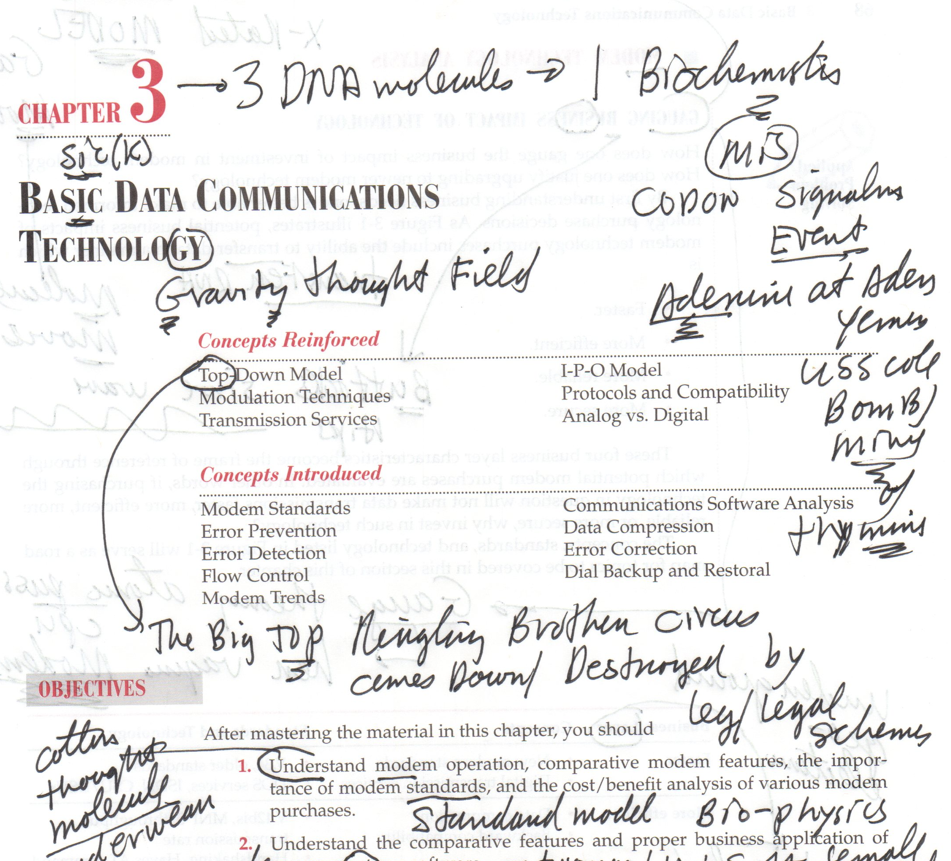 CHAPTER 3 → 3 DNA molecules → 1 Biochemists
sic(k)
MIB
BASIC DATA COMMUNICATIONS
TECHNOLOGY
Signalus
Event
Gravity thought Field
Adenine at Aden
Yemen
Concepts Reinforced
Top-Down Model
Modulation Techniques
Transmission Services
I-P-O Model
Protocols and Compatibility
Analog vs. Digital
USS Cole
Bomb/
Concepts Introduced
Modem Standards
Error Prevention
Error Detection
Flow Control
Modem Trends
Communications Software Analysis
Data Compression
Error Correction
Dial Backup and Restoral
thymine
The Big Top Ringling Brothen Circus
comes Down/ Destroyed by
leg/legal
Schemes
OBJECTIVES
After mastering the material in this chapter, you should
1. Understand modem operation, comparative modem features, the impor-
tance of modem standards, and the cost/benefit analysis of various modem
purchases.
thought
Standard model Bio-physics
2. Understand the comparative features and proper business application of